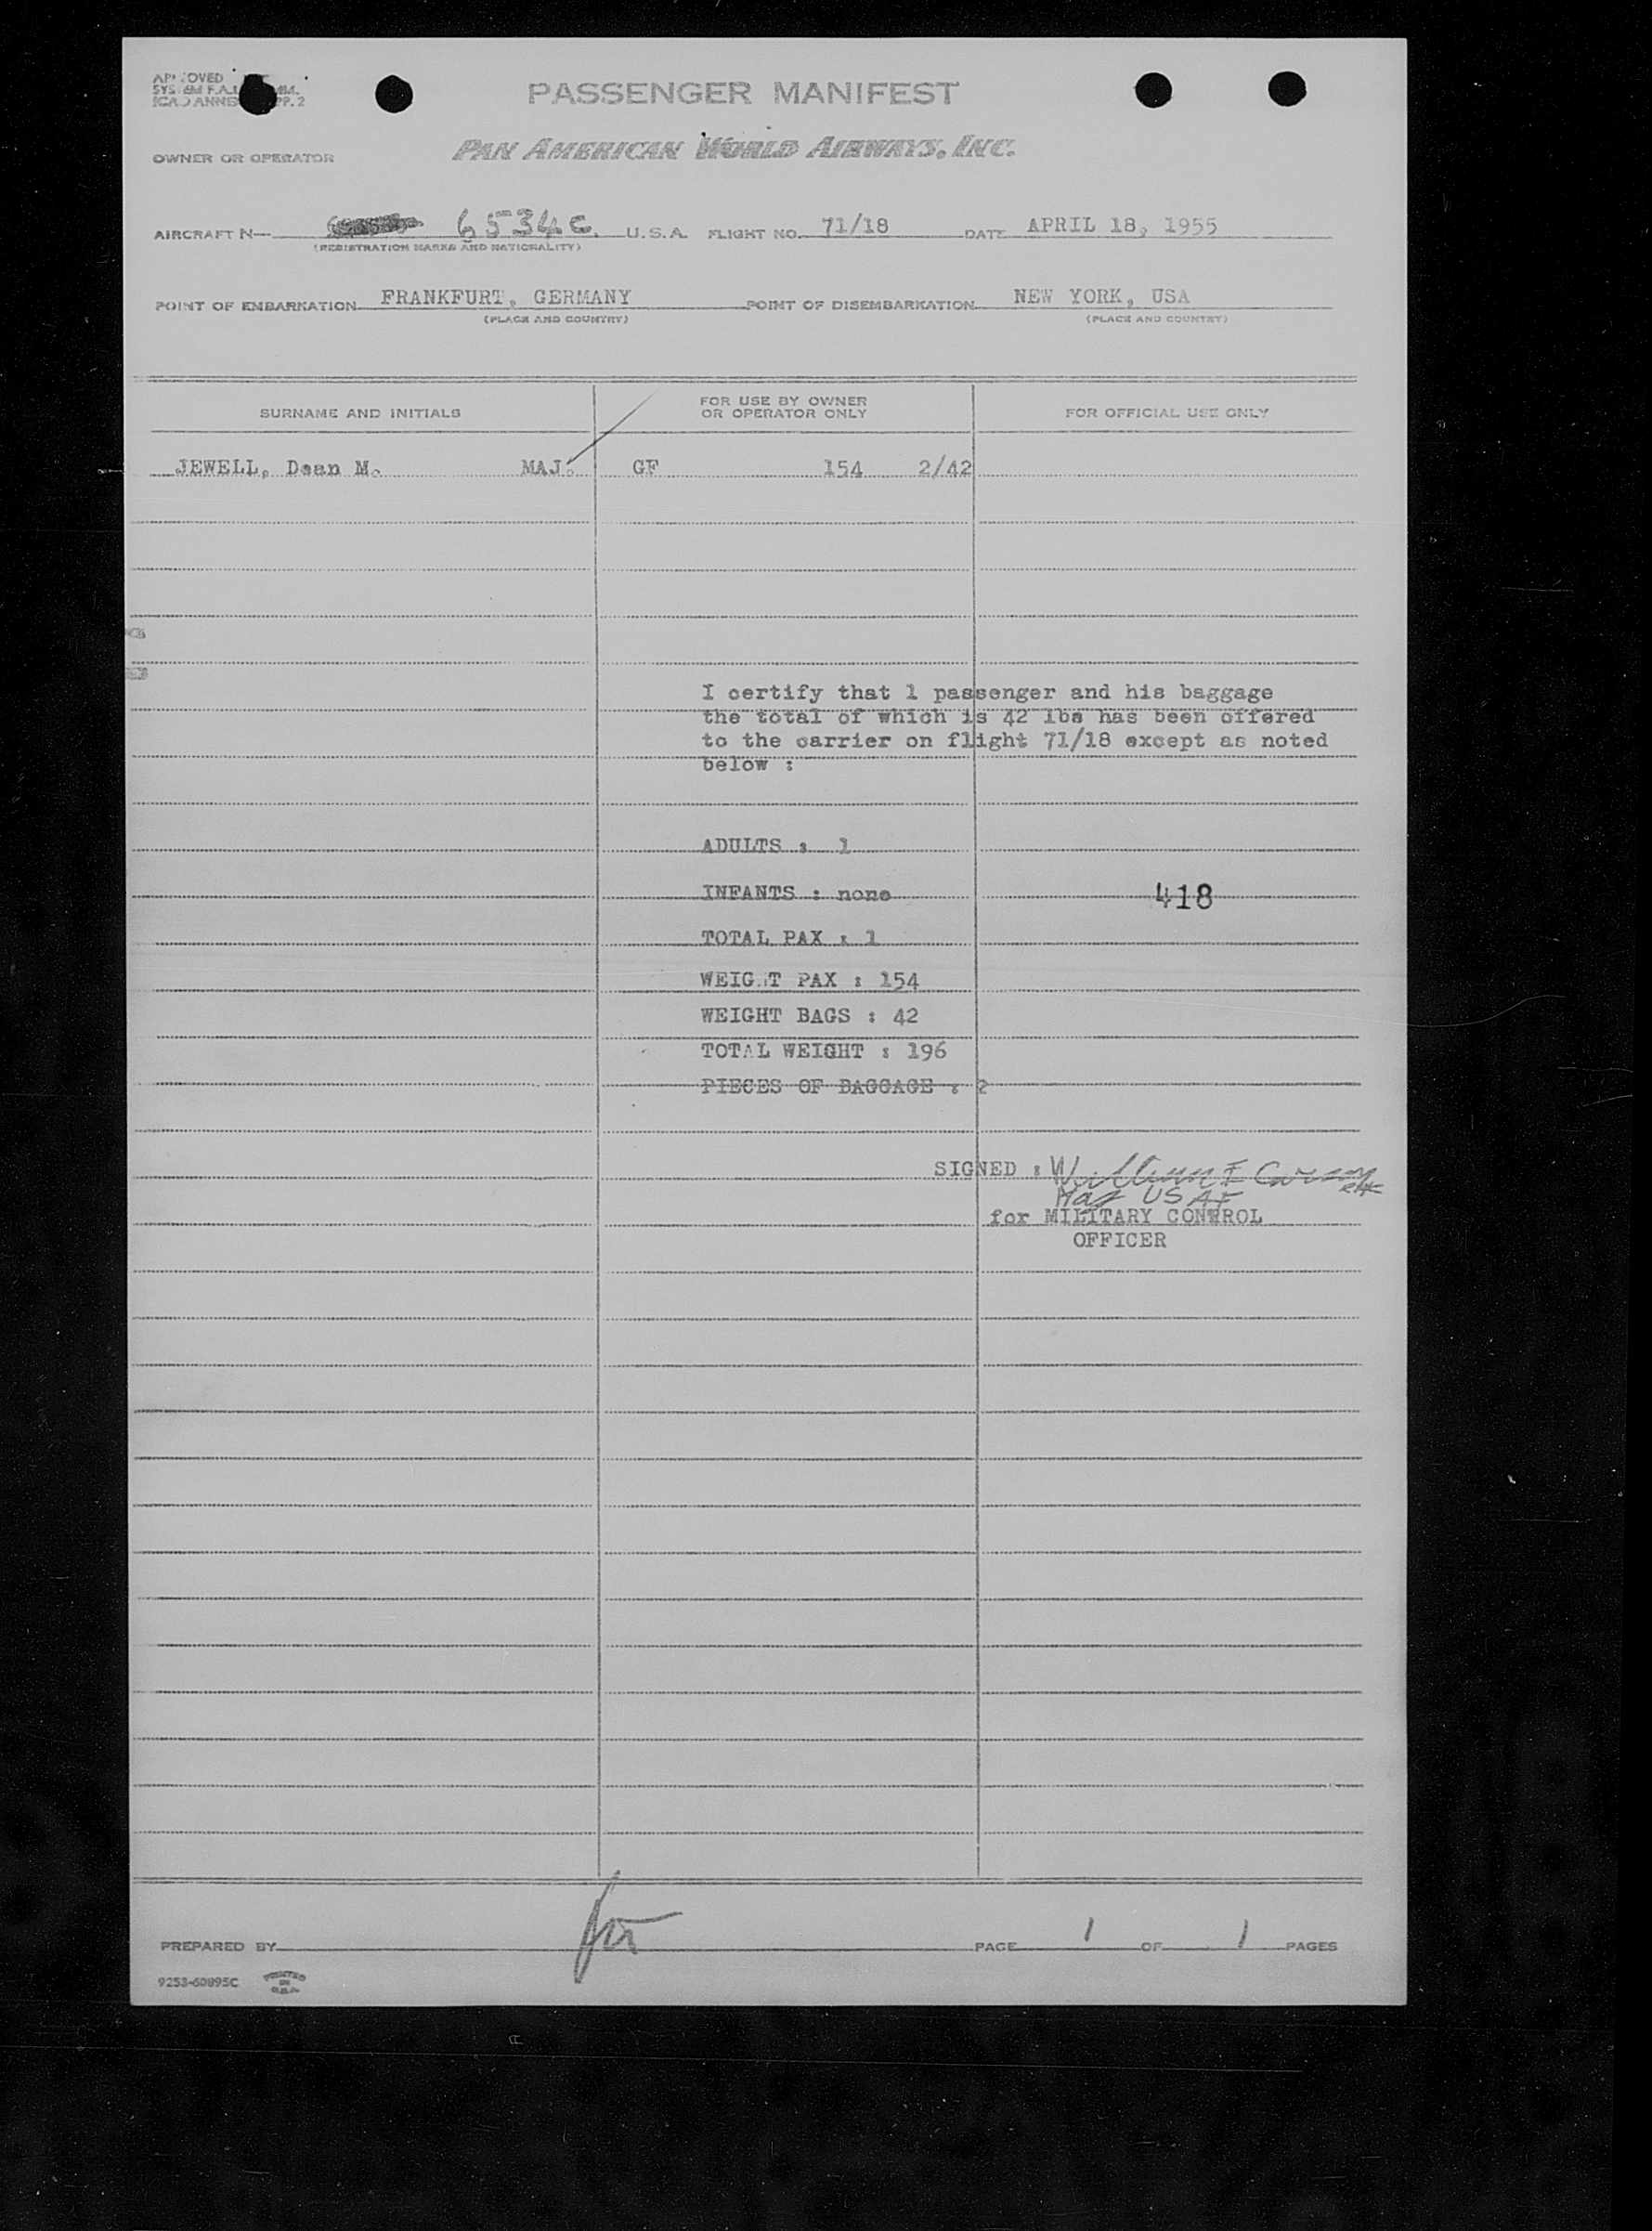 PASSENGER MANIFEST
OWNER OR OPERATOR PAN AMERICAN WORLD AIRWAYS, INC.
AIRCRAFT N— 6534C. U.S.A. FLIGHT NO. 71/18 DATE APRIL 18, 1955
(REGISTRATION MARKS AND NATIONALITY)
POINT OF EMBARKATION FRANKFURT, GERMANY POINT OF DISEMBARKATION NEW YORK, USA
(PLACE AND COUNTRY) (PLACE AND COUNTRY)
SURNAME AND INITIALS FOR USE BY OWNER OR OPERATOR ONLY FOR OFFICIAL USE ONLY
JEWELL, Dean M. MAJ. GF 154 2/42
I certify that 1 passenger and his baggage
the total of which is 42 lbs has been offered
to the carrier on flight 71/18 except as noted
below :
ADULTS : 1
INFANTS : none
418
TOTAL PAX : 1
WEIG T PAX : 154
WEIGHT BAGS : 42
TOTAL WEIGHT : 196
PIECES OF BAGGAGE : 2
SIGNED : William E
Maj USAF
for MILITARY CONTROL
OFFICER
PREPARED BY for PAGE 1 OF 1 PAGES
9253-60895C PRINTED IN U.S.A.